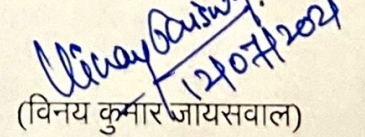 Vinay Jaisw
12/07/2021
(विनय कुमार जायसवाल)